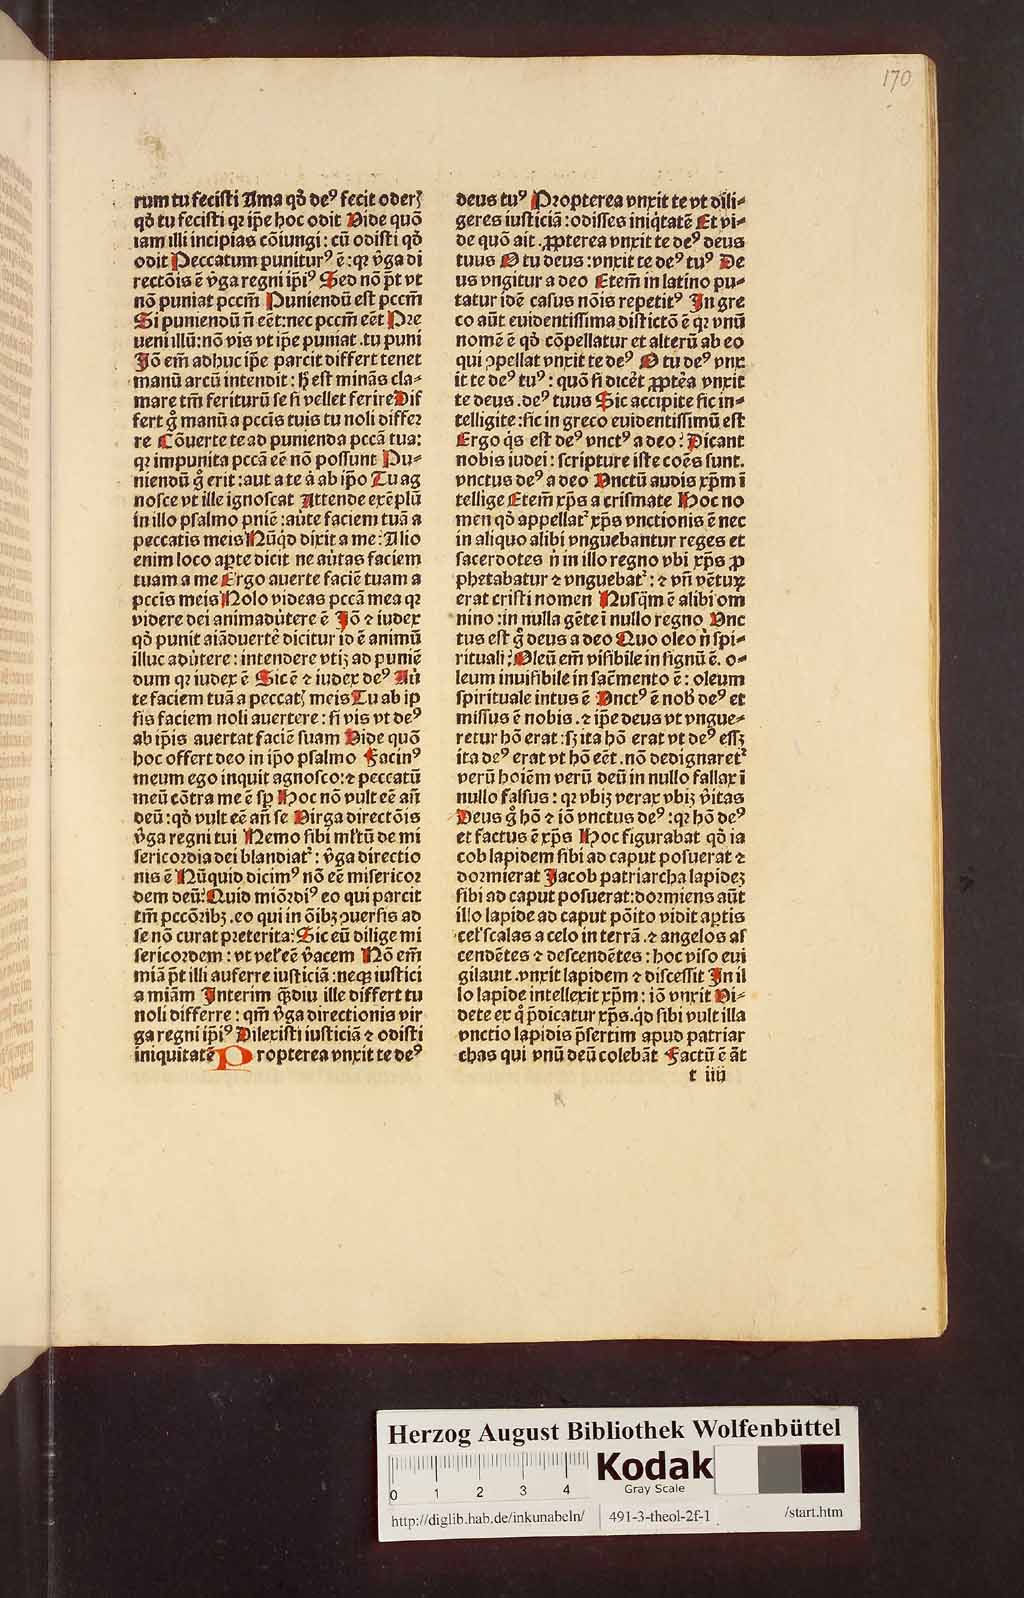 170
rum tu fecisti Ama qď deꝰ fecit oderꝫ
qď tu fecisti qꝛ ip̄e hoc odit Vide quō
iam illi incipias cōiungi : cū odisti qď
odit Peccatum puniturꝰ ē : qꝛ v̄ga di
rectōis ē v̄ga regni ip̄iꝰ Sed nō p̄t vt
nō puniat pccm̄ Puniendū est pccm̄
Si puniendū n̄ eēt : nec pccm̄ eēt Pre
ueni illū : nō vis vt ip̄e puniat . tu puni
Jō em̄ adhuc ip̄e parcit differt tenet
manū arcū intendit : hꝫ est minās cla⸗
mare tm̄ feriturū se si vellet ferire Dif
fert gͦ manū a pccīs tuis tu noli differ
re Cōuerte te ad punienda pccā tua :
qꝛ impunita pccā eē nō possunt Pu⸗
niendū gͦ erit : aut a te aŭ ab ip̄o Tu ag
nosce vt ille ignoscat Attende exēplū
in illo psalmo pnīe : aūte faciem tuā a
peccatis meis Nūqď dixit a me : Alio
enim loco aꝑte dicit ne aūtas faciem
tuam a me Ergo auerte faciē tuam a
pccīs meis Nolo videas pccā mea qꝛ
videre dei animadūtere ē Jō ⁊ iudex
qď punit aīaduertē dicitur iō ē animū
illuc adūtere : intendere vtiꝫ ad puniē
dum qꝛ iudex ē Sicē ⁊ iudex deꝰ Aū
te faciem tuā a peccatꝫ meis Tu ab ip
sis faciem noli auertere : si vis vt deꝰ
ab ip̄is auertat faciē suam Vide quō
hoc offert deo in ip̄o psalmo Facinꝰ
meum ego inquit agnosco : ⁊ peccatū
meū cōtra me ē sp̄ Hoc nō vult eē añ
deū : qď vult eē añ se Virga directōis
v̄ga regni tui Nemo sibi ml̄tū de mi
sericordia dei blandiat᷑ : v̄ga directio
nis ē Nūquid dicimꝰ nō eē misericor
dem deū : Quid miōrdiꝰ eo qui parcit
tm̄ pccōribꝫ . eo qui in ōibꝫ ꝯuersis ad
se nō curat preterita : Sic eū dilige mi
sericordem : vt vel̄ eē v̄acem Nō em̄
miā p̄t illi auferre iusticiā : neqꝫ iustici
a miām Interim qͣdiu ille differt tu
noli differre : qm̄ v̄ga directionis vir
ga regni ip̄iꝰ Dilexisti iusticiā ⁊ odisti
iniquitatē Propterea vnxit te deꝰ
deus tuꝰ Propterea vnxit te vt dili⸗
geres iusticiā : odisses iniqͥtatē Et vi⸗
de quō ait . ꝓpterea vnxit te deꝰ deus
tuus O tu deus : vnxit te deꝰ tuꝰ De
us vngitur a deo Etem̄ in latino pu⸗
tatur idē casus nōis repetitꝰ In gre
co aūt euidentissima distictō ē qꝛ vnū
nomē ē qď cōpellatur et alterū ab eo
qui ꝯpellat vnxit te deꝰ O tu deꝰ vnx
it te deꝰ tuꝰ : quō si dicēt ꝓptēa vnxit
te deus . deꝰ tuus Sic accipite sic in⸗
telligite : sic in greco euidentissimū est
Ergo qͥs est deꝰ vnctꝰ a deo : Dicant
nobis iudei : scripture iste coēs sunt .
vnctus deꝰ a deo Vnctū audis xp̄m ī
tellige Etem̄ xp̄s a crismate Hoc no
men qď appellat᷑ xp̄s vnctionis ē nec
in aliquo alibi vnguebantur reges et
sacerdotes n̄ in illo regno vbi xp̄s ꝓ
phetabatur ⁊ vnguebat᷑ : ⁊ vn̄ vētuꝝ
erat cristi nomen Nusqͣm ē alibi om
nino : in nulla gēte ī nullo regno Vnc
tus est gͦ deus a deo Quo oleo n̄ spi⸗
rituali : Oleū em̄ visibile in signū ē . o⸗
leum inuisibile in sacmento ē : oleum
spirituale intus ē Vnctꝰ ē nob̄ deꝰ et
missus ē nobis . ⁊ ip̄e deus vt vngue⸗
retur hō erat : sꝫ ita hō erat vt deꝰ essꝫ
ita deꝰ erat vt hō eēt . nō dedignaret᷑
verū hoīem verū deū in nullo fallax ī
nullo falsus : qꝛ vbiqꝫ verax vbiqꝫ v̄itas
Deus gͦ hō ⁊ iō vnctus deꝰ : qꝛ hō deꝰ
et factus ē xp̄s Hoc figurabat qď ia
cob lapidem sibi ad caput posuerat ⁊
dormierat Jacob patriarcha lapideꝫ
sibi ad caput posuerat : dormiens aūt
illo lapide ad caput pōito vidit aꝑtis
cel̄ scalas a celo in terrā . ⁊ angelos as
cendētes ⁊ descendētes : hoc viso eui
gilauit . vnxit lapidem ⁊ discessit In il
lo lapide intellexit xp̄m : iō vnxit Vi⸗
dete ex qͦ p̄dicatur xp̄s . qď sibi vult illa
vnctio lapidis p̄sertim apud patriar
chas qui vnū deū colebāt Factū ē āt
t iiij
Herzog August Bibliothek Wolfenbüttel
0 1 2 3 4
Kodak
Gray Scale
http://diglib.hab.de/inkunabeln/ 491-3-theol-2f-1 /start.htm